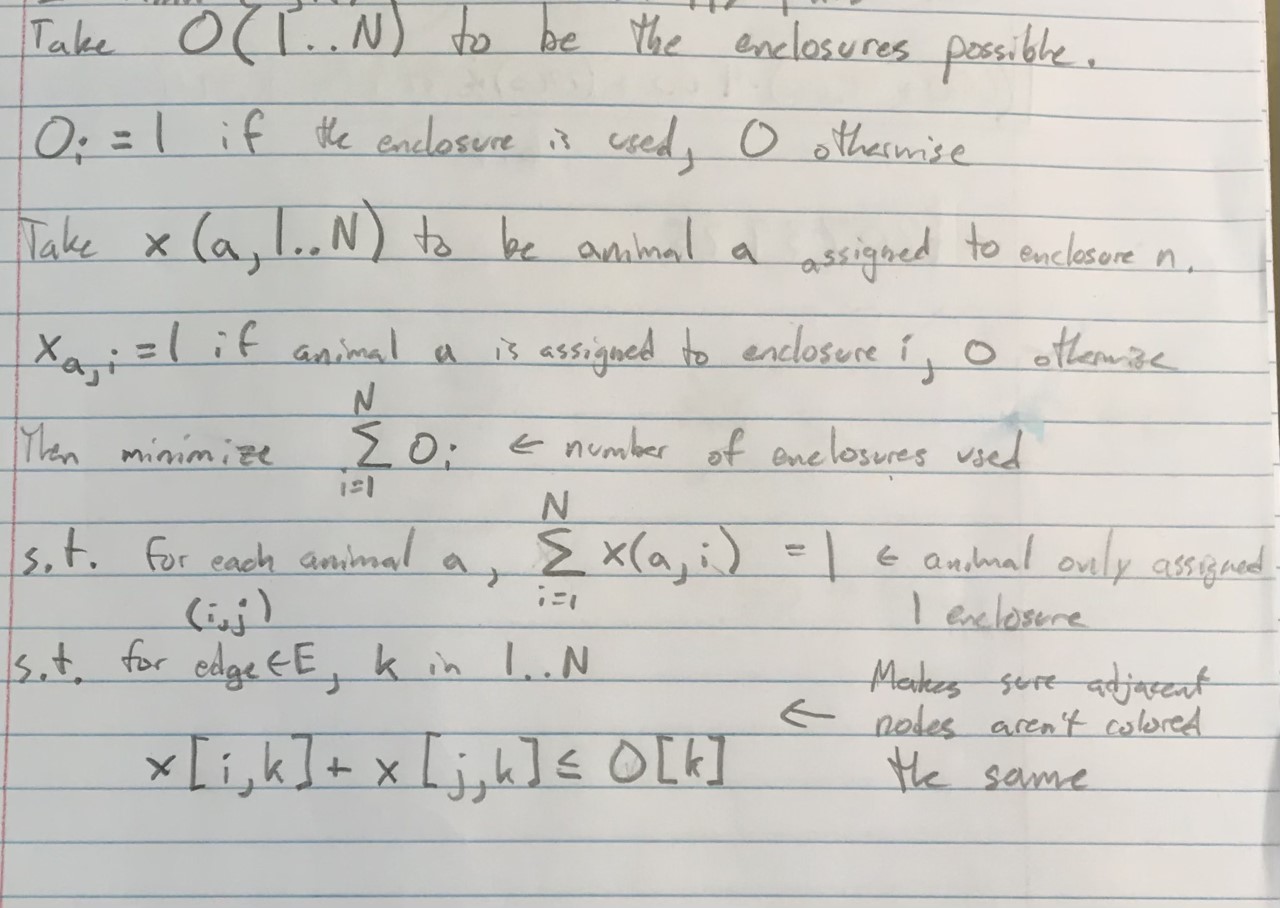 Take O(1..N) to be the enclosures possible.
O_i = 1 if the enclosure is used, 0 otherwise
Take x(a,1..N) to be animal a assigned to enclosure n.
x_{a,i} = 1 if animal a is assigned to enclosure i, 0 otherwise
Then minimize ∑_{i=1}^{N} O_i ← number of enclosures used
s.t. for each animal a, ∑_{i=1}^{N} x(a,i) = 1 ← animal only assigned
1 enclosure
(i,j)
s.t. for edge ∈ E, k in 1..N
Makes sure adjacent
← nodes aren't colored
x[i,k] + x[j,k] ≤ O[k] the same